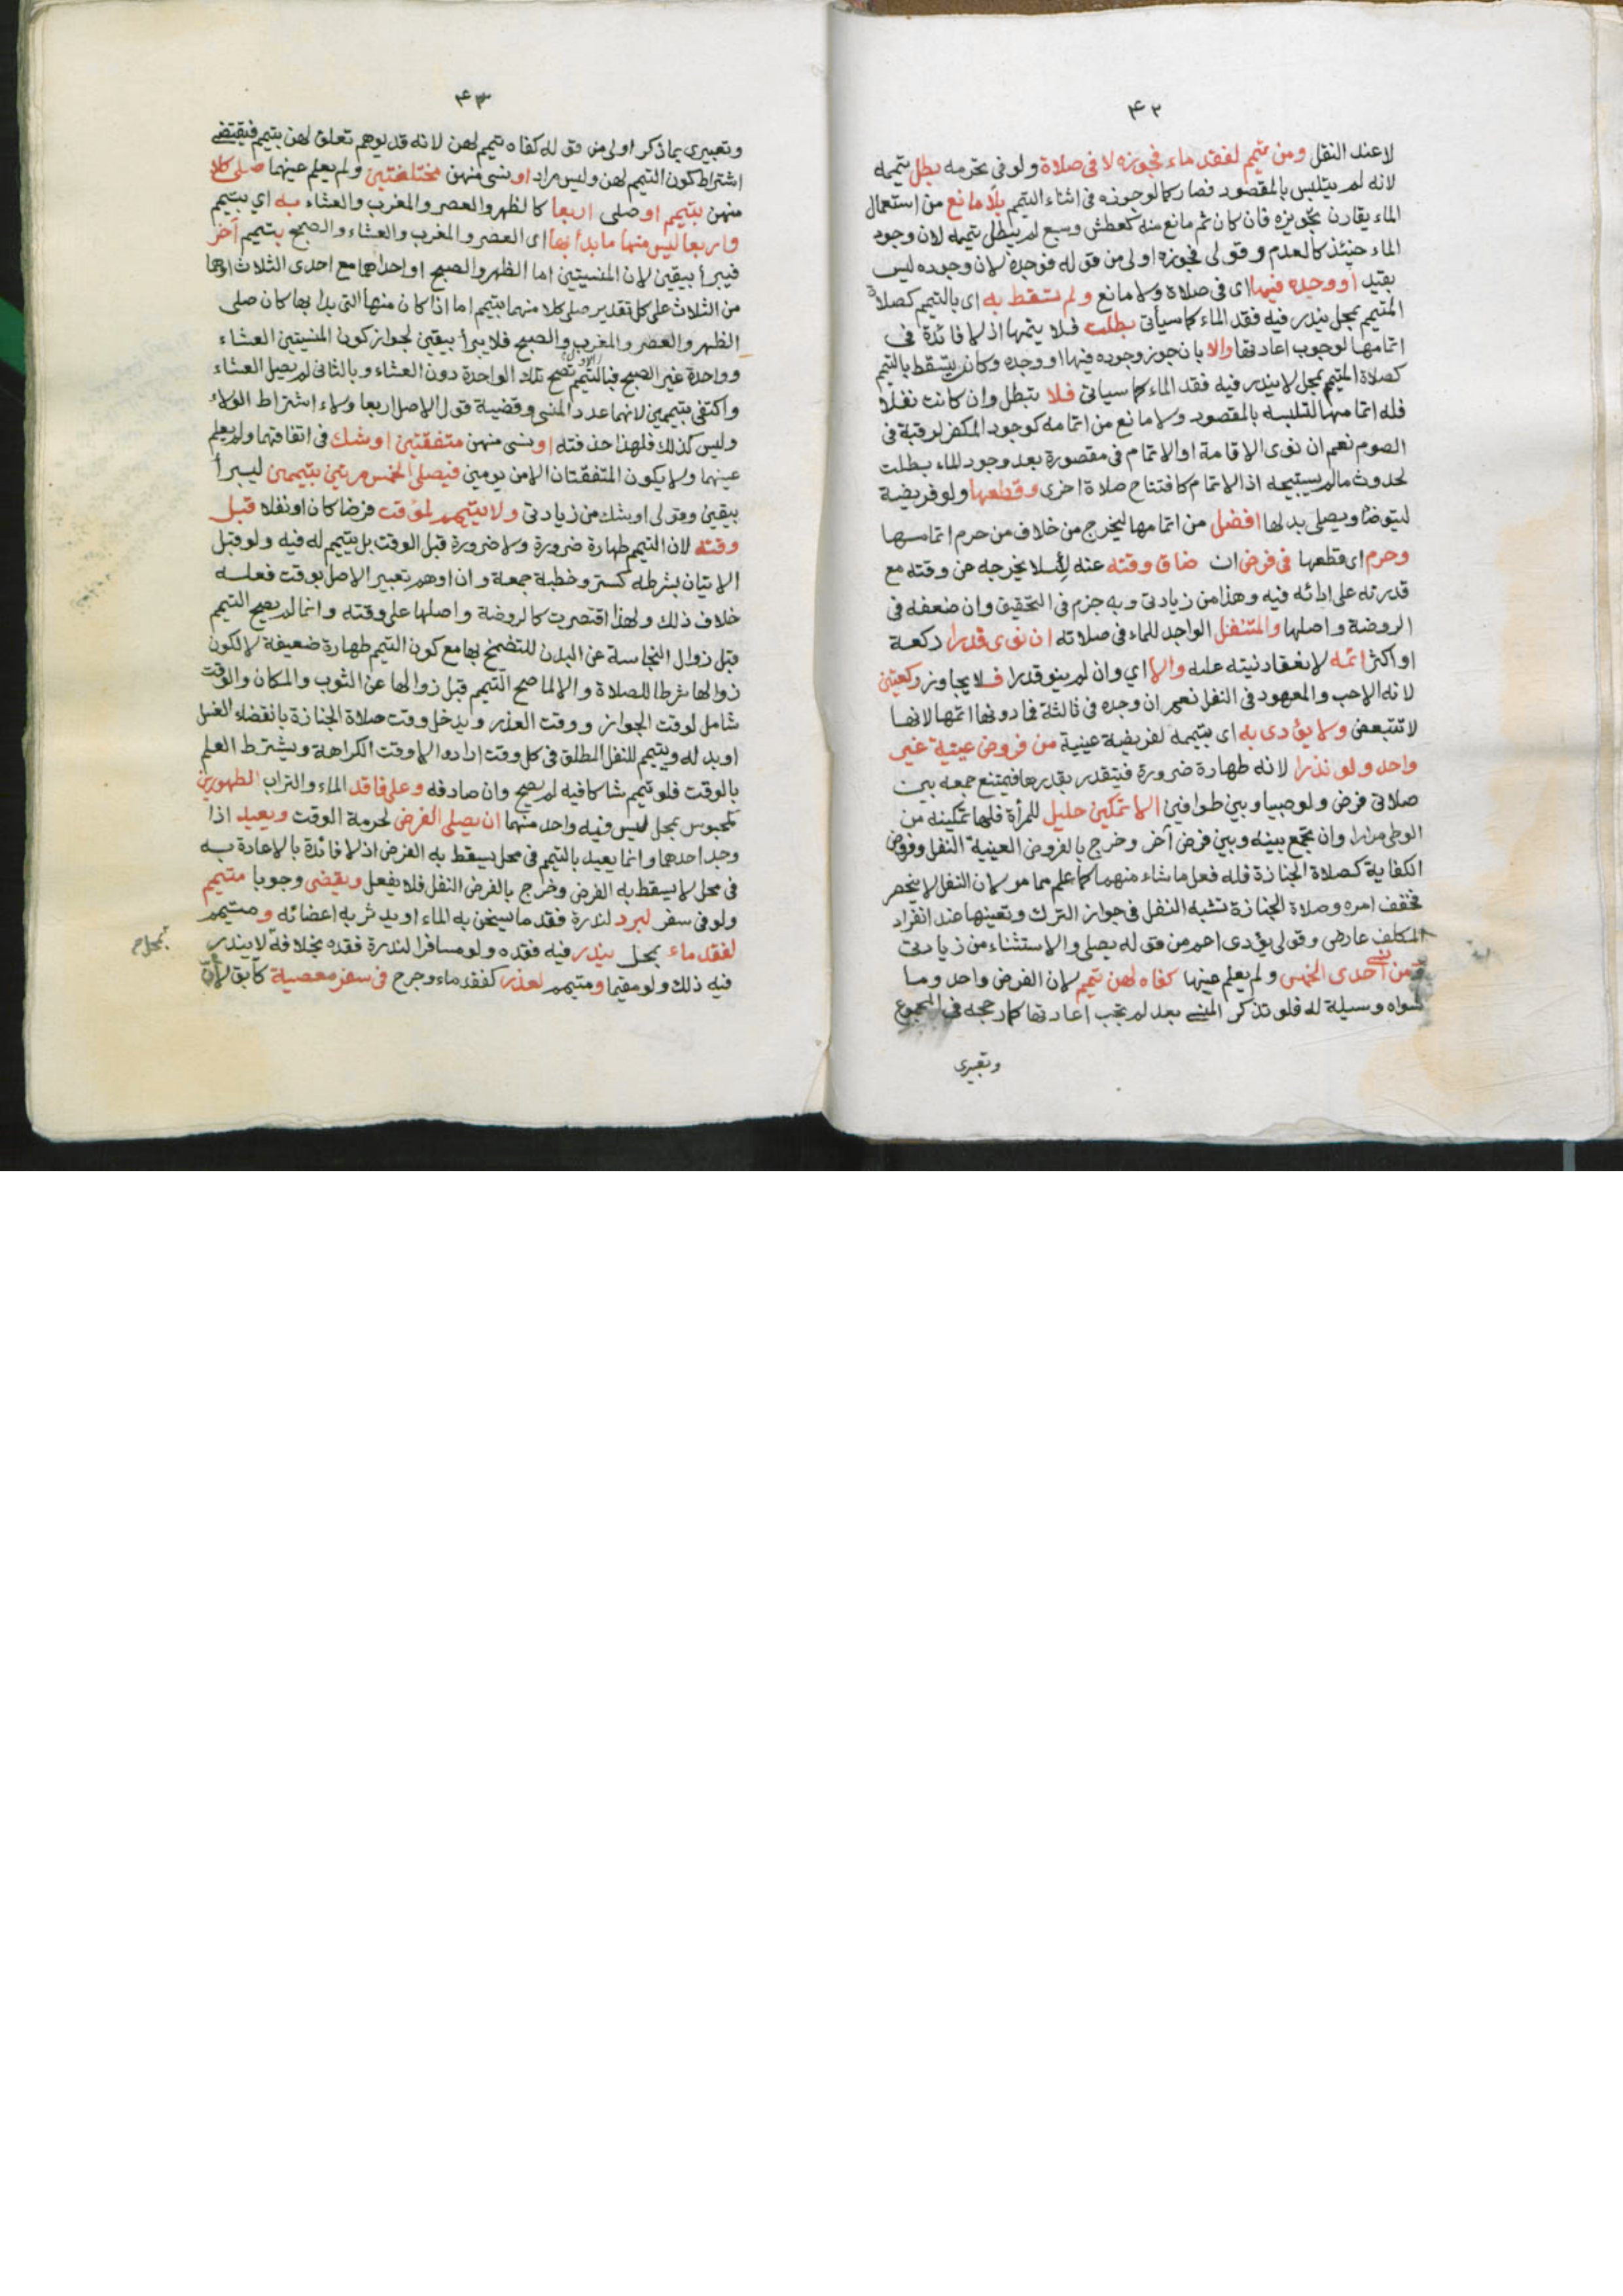 ٤٢
لا عند النقل ومن تيمم لفقد ماء فجوزه لا في صلاة ولو في تحرمه بطل تيممه
لانه لم يتلبس بالمقصود فصار كما لو جوزه في اثناء التيمم بلا مانع من استعمال
الماء يقارن تجويزه فان كان ثم مانع منه كعطش وسبع لم يبطل تيممه لان وجود
الماء حينئذ كالعدم وقولي فجوزه اولى من قوله فوجده لان وجوده ليس
بقيد او وجده فيها اي في صلاة ولا مانع ولم تسقط به اي بالتيمم كصلاة
المتيمم بمحل يندر فيه فقد الماء كما سيأتي بطلت فلا يتمها اذ لا فائدة في
اتمامها لوجوب اعادتها والا بان جوز وجوده فيها او وجده وكان يسقط بالتيمم
كصلاة المتيمم بمحل لا يندر فيه فقد الماء كما سياتي فلا تبطل وان كانت نفلا
فله اتمامها لتلبسه بالمقصود ولا مانع من اتمامه كوجود المكفر لرقبة في
الصوم نعم ان نوى الاقامة او الاتمام في مقصورة بعد وجود الماء بطلت
لحدوث ما لم يستبيحه اذ الاتمام كافتتاح صلاة اخرى وقطعها ولو فريضة
ليتوضأ ويصلي بدلها افضل من اتمامها ليخرج من خلاف من حرم اتمامها
وحرم اي قطعها في فرض ان ضاق وقته عنه لئلا يخرجه عن وقته مع
قدرته على ادائه فيه وهذا من زيادتي وبه جزم في التحقيق وان ضعفه في
الروضة واصلها والمتنفل الواجد للماء في صلاته ان نوى قدرا ركعة
او اكثر اتمه لانعقاد نيته عليه والا اي وان لم ينو قدرا فلا يجاوز ركعتين
لانه الاحب والمعهود في النفل نعم ان وجده في ثالثة فما دونها اتمها لانها
لا تتبعض ولا يؤدى به اي بتيممه لفريضة عينية من فروض عينية غير
واحد ولو نذرا لانه طهارة ضرورة فيتقدر بقدرها فيمتنع جمعه بين
صلاتي فرض ولو صبيا وبين طوافين الا تمكين حليل للمرأة فلها تمكينه من
الوطي مرارا وان تجمع بينه وبين فرض آخر وخرج بالفروض العينية النفل وفروض
الكفاية كصلاة الجنازة فله فعل ما شاء منهما كما علم مما مر لان النفل لا ينحصر
فخفف امره وصلاة الجنازة تشبه النفل في جواز الترك وتعينها عند انفراد
المكلف عارض وقولي يؤدى اعم من قوله يصلي والاستثناء من زيادتي
ومن نسي احدى الخمس ولم يعلم عينها كفاه لهن تيمم لان الفرض واحد وما
سواه وسيلة له فلو تذكر المنسي بعد لم تجب اعادتها كما رجحه في المجموع
وتعبيري
٤٣
وتعبيري بما ذكر اولى من قوله كفاه تيمم لهن لانه قد يوهم تعلق لهن بتيمم فيقتضي
اشتراط كون التيمم لهن وليس مراد او نسي منهن مختلفتين ولم يعلم عينهما صلى كلا
منهن بتيمم او صلى اربعا كالظهر والعصر والمغرب والعشاء به اي بتيمم
واربعا ليس منها ما بدأ بها اي العصر والمغرب والعشاء والصبح بتيمم آخر
فيبرأ بيقين لان المنسيتين اما الظهر والصبح او احداهما مع احدى الثلاث او هما
من الثلاث على كل تقدير صلى كلا منهما بتيمم اما اذا كان منها التي بدا بها كان صلى
الظهر والعصر والمغرب والصبح فلا يبرأ بيقين لجواز كون المنسيتين العشاء
وواحدة غير الصبح فبالتيمم الاول تصح تلك الواحدة دون العشاء وبالثاني لم يصل العشاء
واكتفى بتيممين لانهما عدد المنسي وقضية قول الاصل اربعا ولاء اشتراط الولاء
وليس كذلك فلهذا حذفته او نسي منهن متفقتين او شك في اتفاقهما ولم يعلم
عينهما ولا يكون المتفقتان الا من يومين فيصلي الخمس مرتين بتيممين ليبرأ
بيقين وقولي او شك من زيادتي ولا يتيمم لمؤقت فرضا كان او نفلا قبل
وقته لان التيمم طهارة ضرورة ولا ضرورة قبل الوقت بل يتيمم له فيه ولو قبل
الاتيان بشرطه كستر وخطبة جمعة وان اوهم تعبير الاصل بوقت فعله
خلاف ذلك ولهذا اقتصرت كالروضة واصلها على وقته وانما لم يصح التيمم
قبل زوال النجاسة عن البدن للتضمخ بها مع كون التيمم طهارة ضعيفة لا لكون
زوالها شرطا للصلاة والا لما صح التيمم قبل زوالها عن الثوب والمكان والوقت
شامل لوقت الجواز ووقت العذر ويدخل وقت صلاة الجنازة بانقضاء الغسل
او بدله ويتيمم للنفل المطلق في كل وقت اراده الا وقت الكراهة ويشترط العلم
بالوقت فلو تيمم شاكا فيه لم يصح وان صادفه وعلى فاقد الماء والتراب الطهورين
كمحبوس بمحل ليس فيه واحد منهما ان يصلي الفرض لحرمة الوقت ويعيد اذا
وجد احدهما وانما يعيد بالتيمم في محل يسقط به الفرض اذ لا فائدة بالاعادة به
في محل لا يسقط به الفرض وخرج بالفرض النفل فلا يفعل ويقضي وجوبا متيمم
ولو في سفر لبرد لندرة فقد ما يسخن به الماء او يدثر به اعضائه ومتيمم
لفقد ماء بمحل يندر فيه فقده ولو مسافرا لندرة فقده بخلافه لا يندر
بمحل صح
فيه ذلك ولو مقيما ومتيمم لعذر كفقد ماء وجرح في سفر معصية كآبق لان